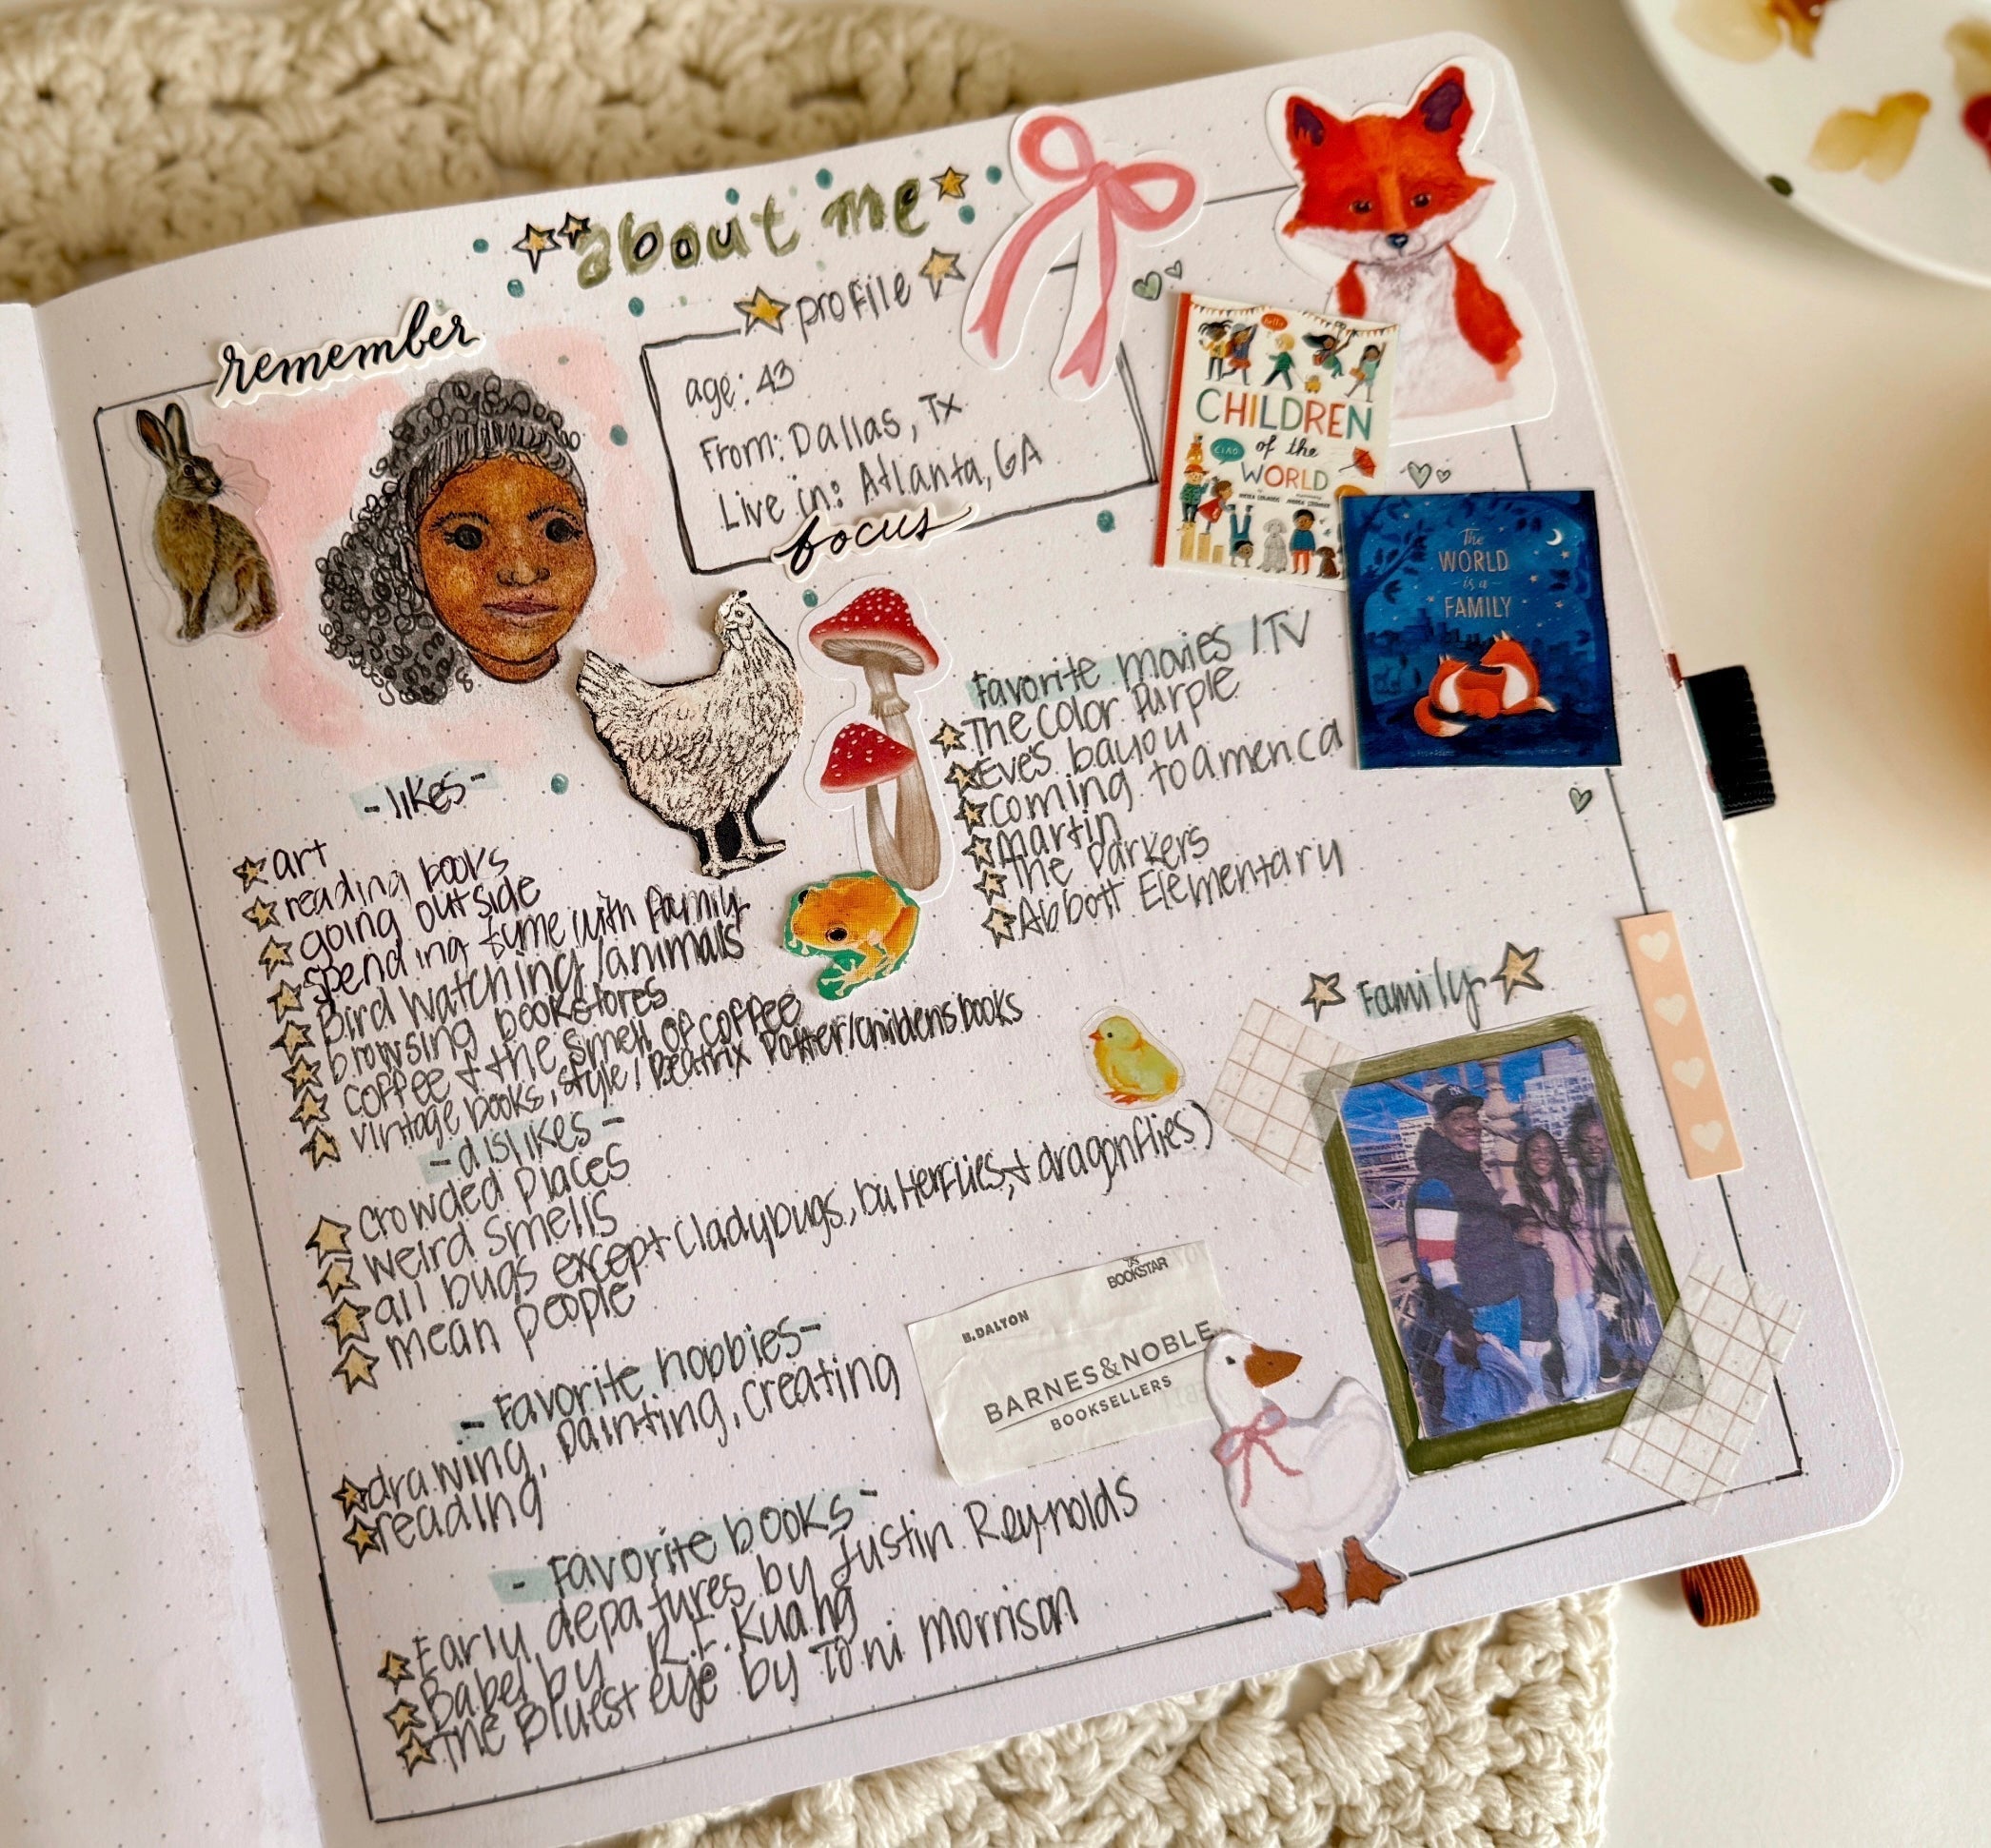 about me
remember
profile
age: 43
From: Dallas, Tx
Live in: Atlanta, GA
focus
hello
CHILDREN
of the
CIAO
WORLD
The
WORLD
- is a -
FAMILY
- likes -
art
reading books
going outside
spending tyme with family
Bird watching/animals
browsing bookstores
coffee + the smell of coffee
vintage books, style/ Beatrix Potter/childens books
- dislikes -
crowded places
weird smells
all bugs except (ladybugs, butterflies, + dragonflies)
mean people
- Favorite hobbies -
drawing, painting, creating
reading
- Favorite books -
Early depatures by Justin Reynolds
Babel by R.F. Kuang
The Bluest eye by Toni Morrison
Favorite movies /TV
The Color Purple
Eve's bayou
coming to america
martin
The Parkers
Abbott Elementary
Family
BOOKSTAR
B. DALTON
BARNES & NOBLE
BOOKSELLERS